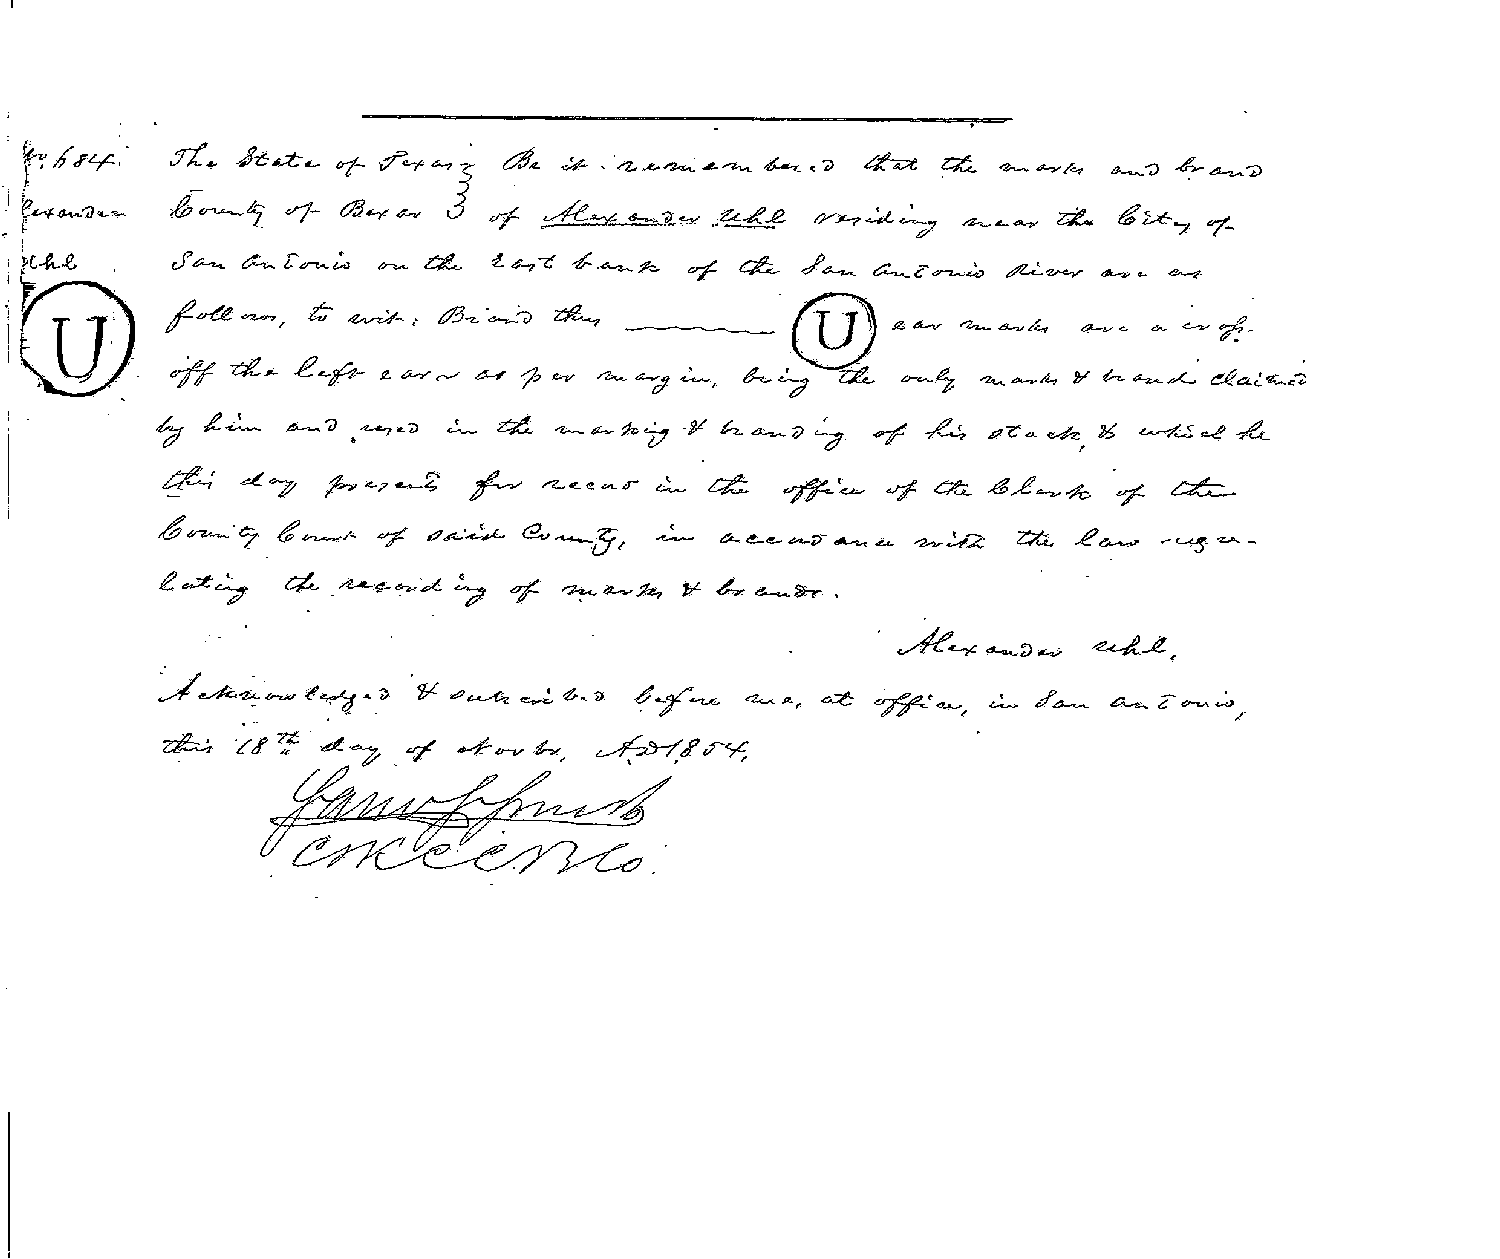 No. 684. The State of Texas } Be it remembered that the marks and brand
lexander County of Bexar } of Alexander Uhl residing near the City of
Uhl San Antonio on the East bank of the San Antonio River are as
U follows, to wit: Brand thus U ear marks are a crop-
off the left ear as per margin, being the only marks & brands claimed
by him and used in the marking & branding of his stock, & which he
this day presents for record in the office of the Clerk of the
County Court of said County, in accordance with the law regu-
lating the recording of marks & brands.
Alexander Uhl.
Acknowledged & subscribed before me, at office, in San Antonio,
this 18th day of Novbr. AD 1854.
CKCCBCo.